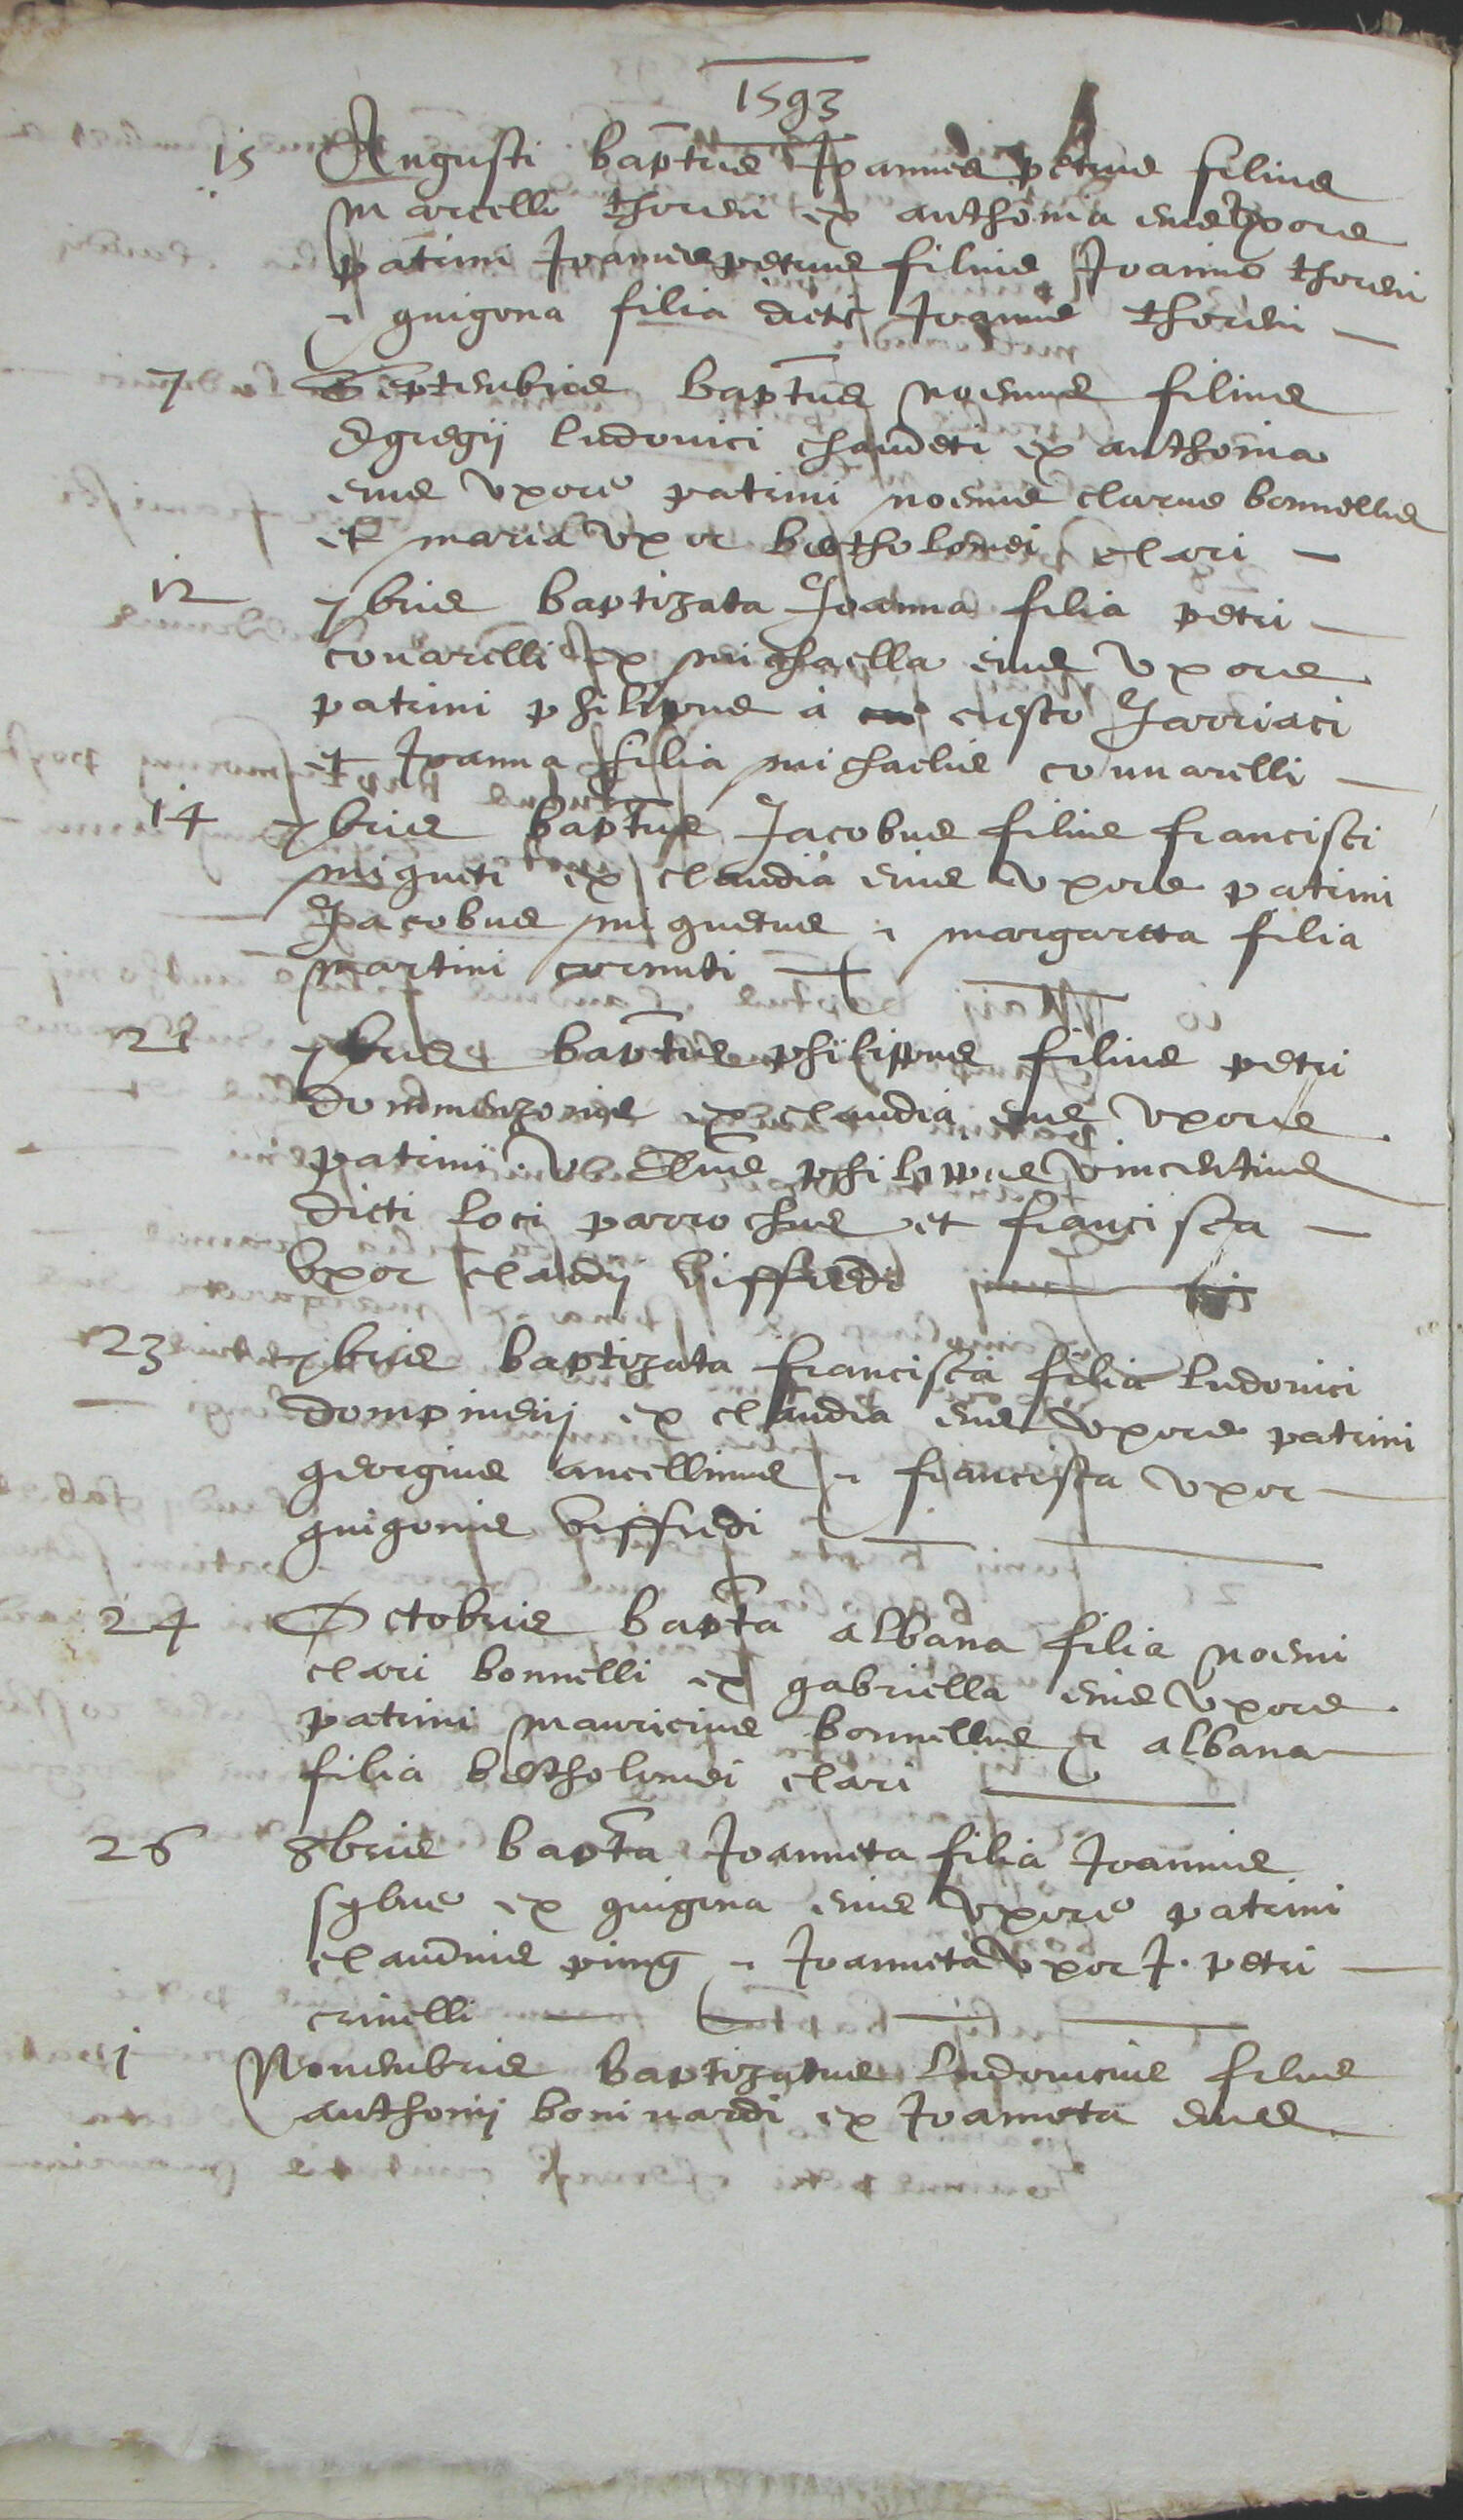 1593
15 Augusti bap̄tus Joannes petrus filius
marcelli thoreni ex anthonia eius uxore
patrini Joannespetrus filius Joannis thoreni
et guigona filia dicti Joannis thoreni —
7 Septembris bap̄tus noemus filius
Egregij ludovici chaudeti ex anthonia
eius uxore patrini noemus clarus bonnellus
et maria uxor bertholomei clari —
12 7bris baptizata Joanna filia petri —
couarelli ex michaella eius uxore
patrini philipus a cresto Jarriaci
et Joanna filia michaelis couuarelli —
14 7bris bap̄tus Jacobus filius francisci
migueti ex claudia eius uxore patrini
Jacobus miguetus et margareta filia
martini cornuti —
21 7bris bap̄tus philippus filius petri
dommenzonis ex claudia eius uxore
patrini V. philippus vincentius
dicti loci parrochus et francisca —
uxor claudij viffredi
23 7bris baptizata francisca filia ludovici
dompnierij ex claudia eius uxore patrini
georgius ancellinus et francisca uxor —
guigonis viffredi
24 Octobris bap̄ta albana filia noemi
clari bonnelli ex gabriella eius uxore
patrini mauricius bonnellus et albana —
filia bertholomei clari
26 8bris bap̄ta Joanneta filia Joannis
sylve ex guigona eius uxore patrini
claudius ping et Joanneta uxor J. petri —
crinelli —
1 Novembris baptizatus ludovicus filius
anthonij boniuardi ex Joanneta eius